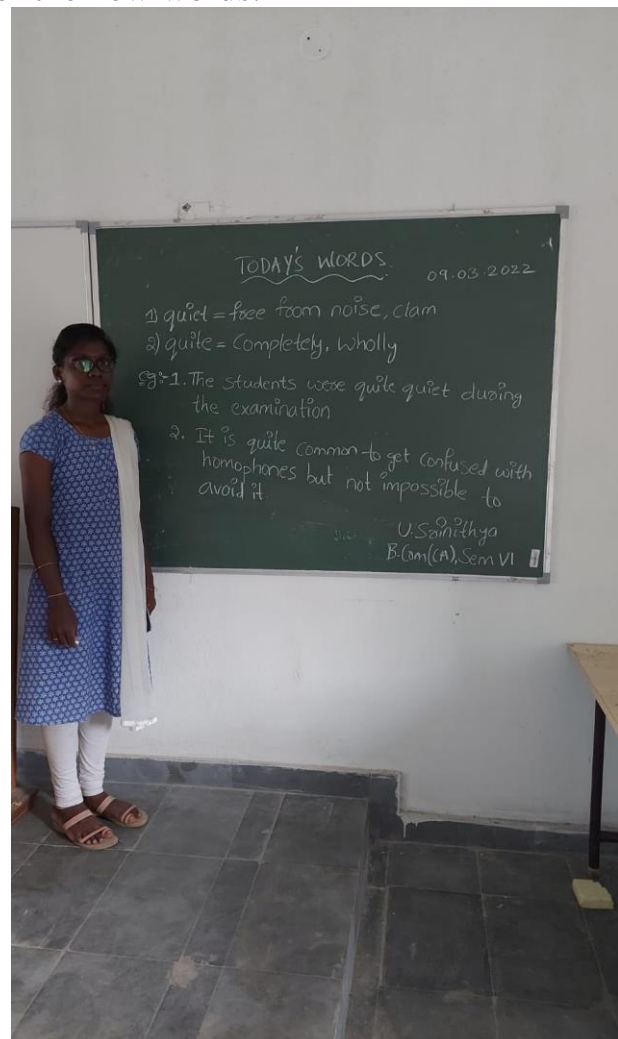 TODAY'S WORDS
09.03.2022
1) quiet = free from noise, clam
2) quite = Completely, Wholly
Eg:- 1. The students were quite quiet during
the examination
2. It is quite common to get confused with
homophones but not impossible to
avoid it
U. Srinithya
B.Com(CA), Sem VI